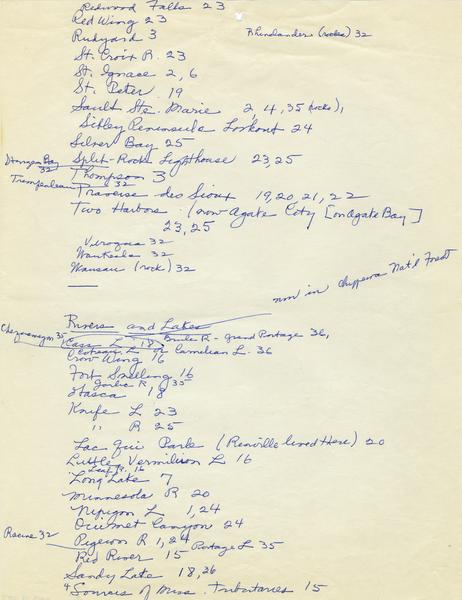 Redwood Falls 23
Red Wing 23
Rhinelander (rocks) 32
Rudyard 3
St. Croix R. 23
St. Ignace 2, 6
St. Peter 19
Sault Ste. Marie 2, 4, 35 (locks),
Sibley Peninsula Lookout 24
Silver Bay 25
Sturgeon Bay 32
Split-Rock Lighthouse 23, 25
Thompson 3
Trempealeau 32
Traverse des Sioux 19, 20, 21, 22
Two Harbors - (now Agate City [on Agate Bay]
23, 25
Viroqua 32
Wautoma 32
Wausau (rock) 32
now in Chippewa Nat'l Forest
Rivers and Lakes
Chequamegon 35
Brule R - Grand Portage 36,
Cass L 18
Coteau L or Carnelian L. 36
Crow Wing 16
Fort Snelling 16
Garlic R. 35
Itasca 18
Knife L 23
" R 25
Lac Qui Parle (Renville lived there) 20
Little Vermilion L 16
Leaf R. 16
Long Lake 7
Minnesota R 20
Nipigon L 1, 24
Ouimet Canyon 24
Pigeon R 1, 24
Racine 32
Portage L 35
Red River 15
Sandy Lake 18, 26
+ Sources of Miss. tributaries 15